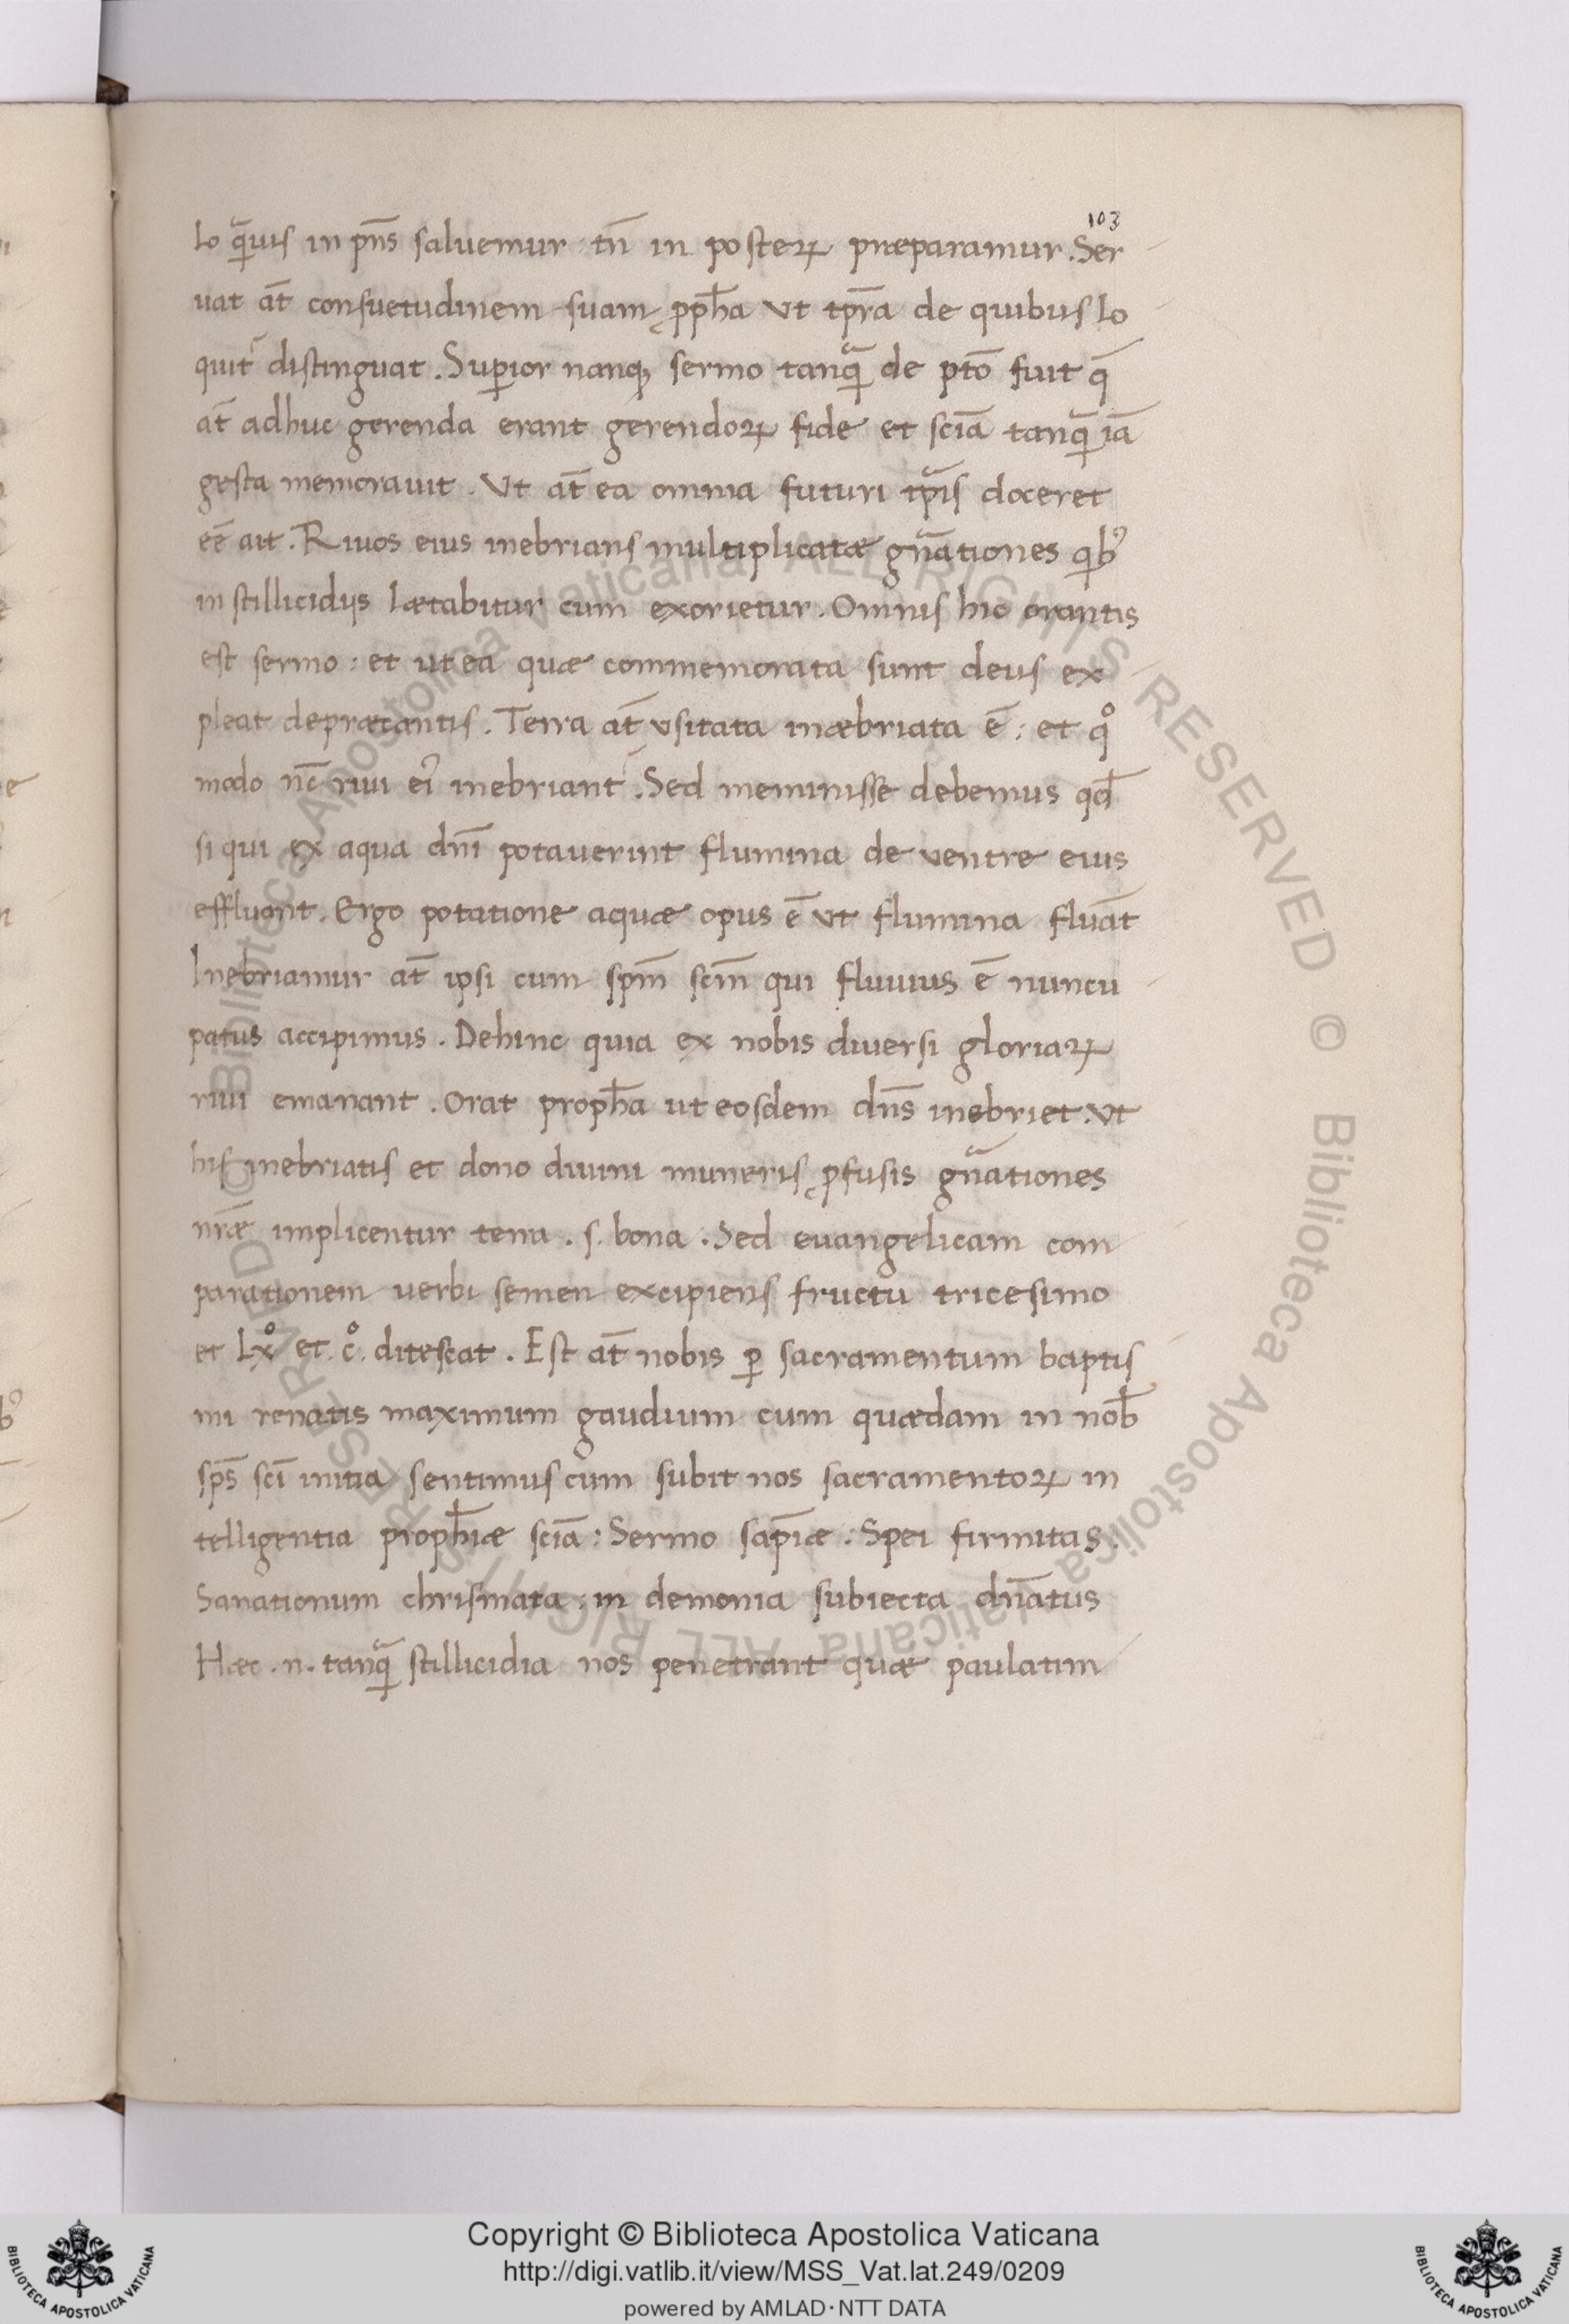 103
lo quãuis in pñs saluemur tñ in posteꝝ præparamur. Ser
uat at̄ consuetudinem suam ꝓpħa ut tp̄ra de quibus lo
quit᷑ distinguat. Suꝑior nanq; sermo tanquã de ptō fuit q̄
at̄ adhuc gerenda erant gerendoꝝ fide et sciā tanquã iā
gesta memorauit. Ut at̄ ea omnia futuri tp̃is doceret
eē ait. Riuos eius inebrians multiplicatæ gñationes qib᷒
in stillicidijs lætabitur cum exorietur. Omnis hic orantis
est sermo: et ut ea quæ commemorata sunt deus ex
pleat deprætantis. Terra at̄ usitata inæbriata ē: et qº
modo nc̄ riui ei᷒ inebriant᷑. Sed meminisse debemus qđ
si qui ex aqua dnī potauerint flumina de ventre eius
effluant. Ergo potatione aquæ opus ē ut flumina fluāt
Inebriamur at̄ ipsi cum spm̄ scm̄ qui fluuius ē nuncu
patus accipimus. Dehinc quia ex nobis diuersi gloriaꝝ
riui emanant. Orat propħa ut eosdem dñs inebriet. Ut
his inebriatis et dono diuini muneris ꝓfusis gñationes
nr̄æ implicentur terra. s. bona. Sed euangelicam com
parationem uerbi semen excipiens fructu tricesimo
et Lxº et cº. ditescat. Est at̄ nobis ꝑ sacramentum baptis
mi renatis maximum gaudium cum quædam in nob̄
sp̄s scī initia sentimus cum subit nos sacramentoꝝ in
telligentia propħiæ sciā: Sermo sap̄iæ. Spei firmitas.
Sanationum chrismata: in demonia subiecta dñatus
Hæc .n. tanquã stillicidia nos penetrant quæ paulatim
Copyright © Biblioteca Apostolica Vaticana
http://digi.vatlib.it/view/MSS_Vat.lat.249/0209
powered by AMLAD·NTT DATA